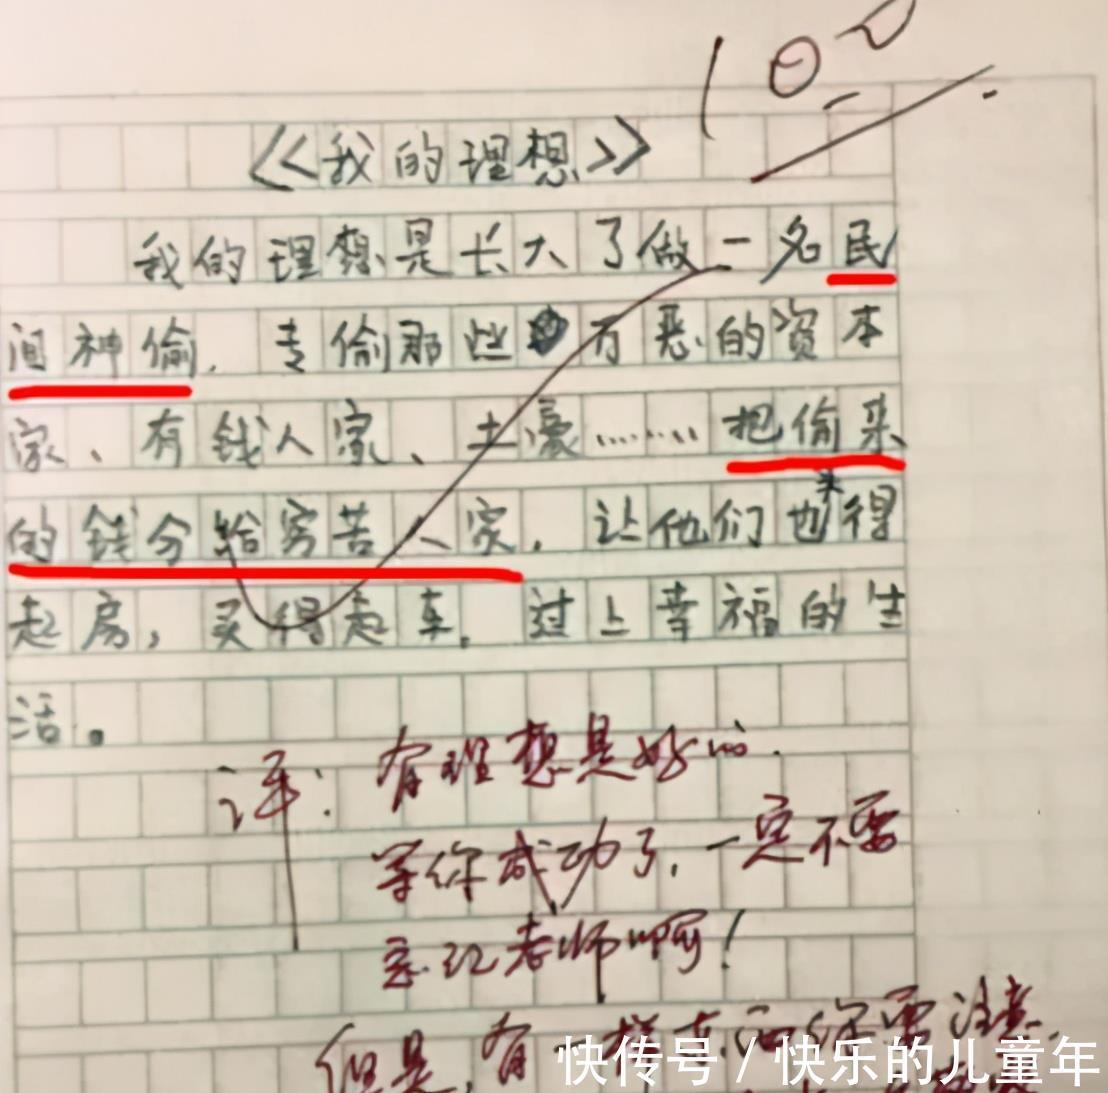 100
《我的理想》
我的理想是长大了做一名民
间神偷．专偷那些万恶的资本
家、有钱人家、土豪………把偷来
的钱分给穷苦人家．让他们也买得
起房，买得起车．过上幸福的生
活。
评：有理想是好的．
等你成功了，一定不要
忘记老师啊！
但是，有一样东西你要注意，
快传号/快乐的儿童年